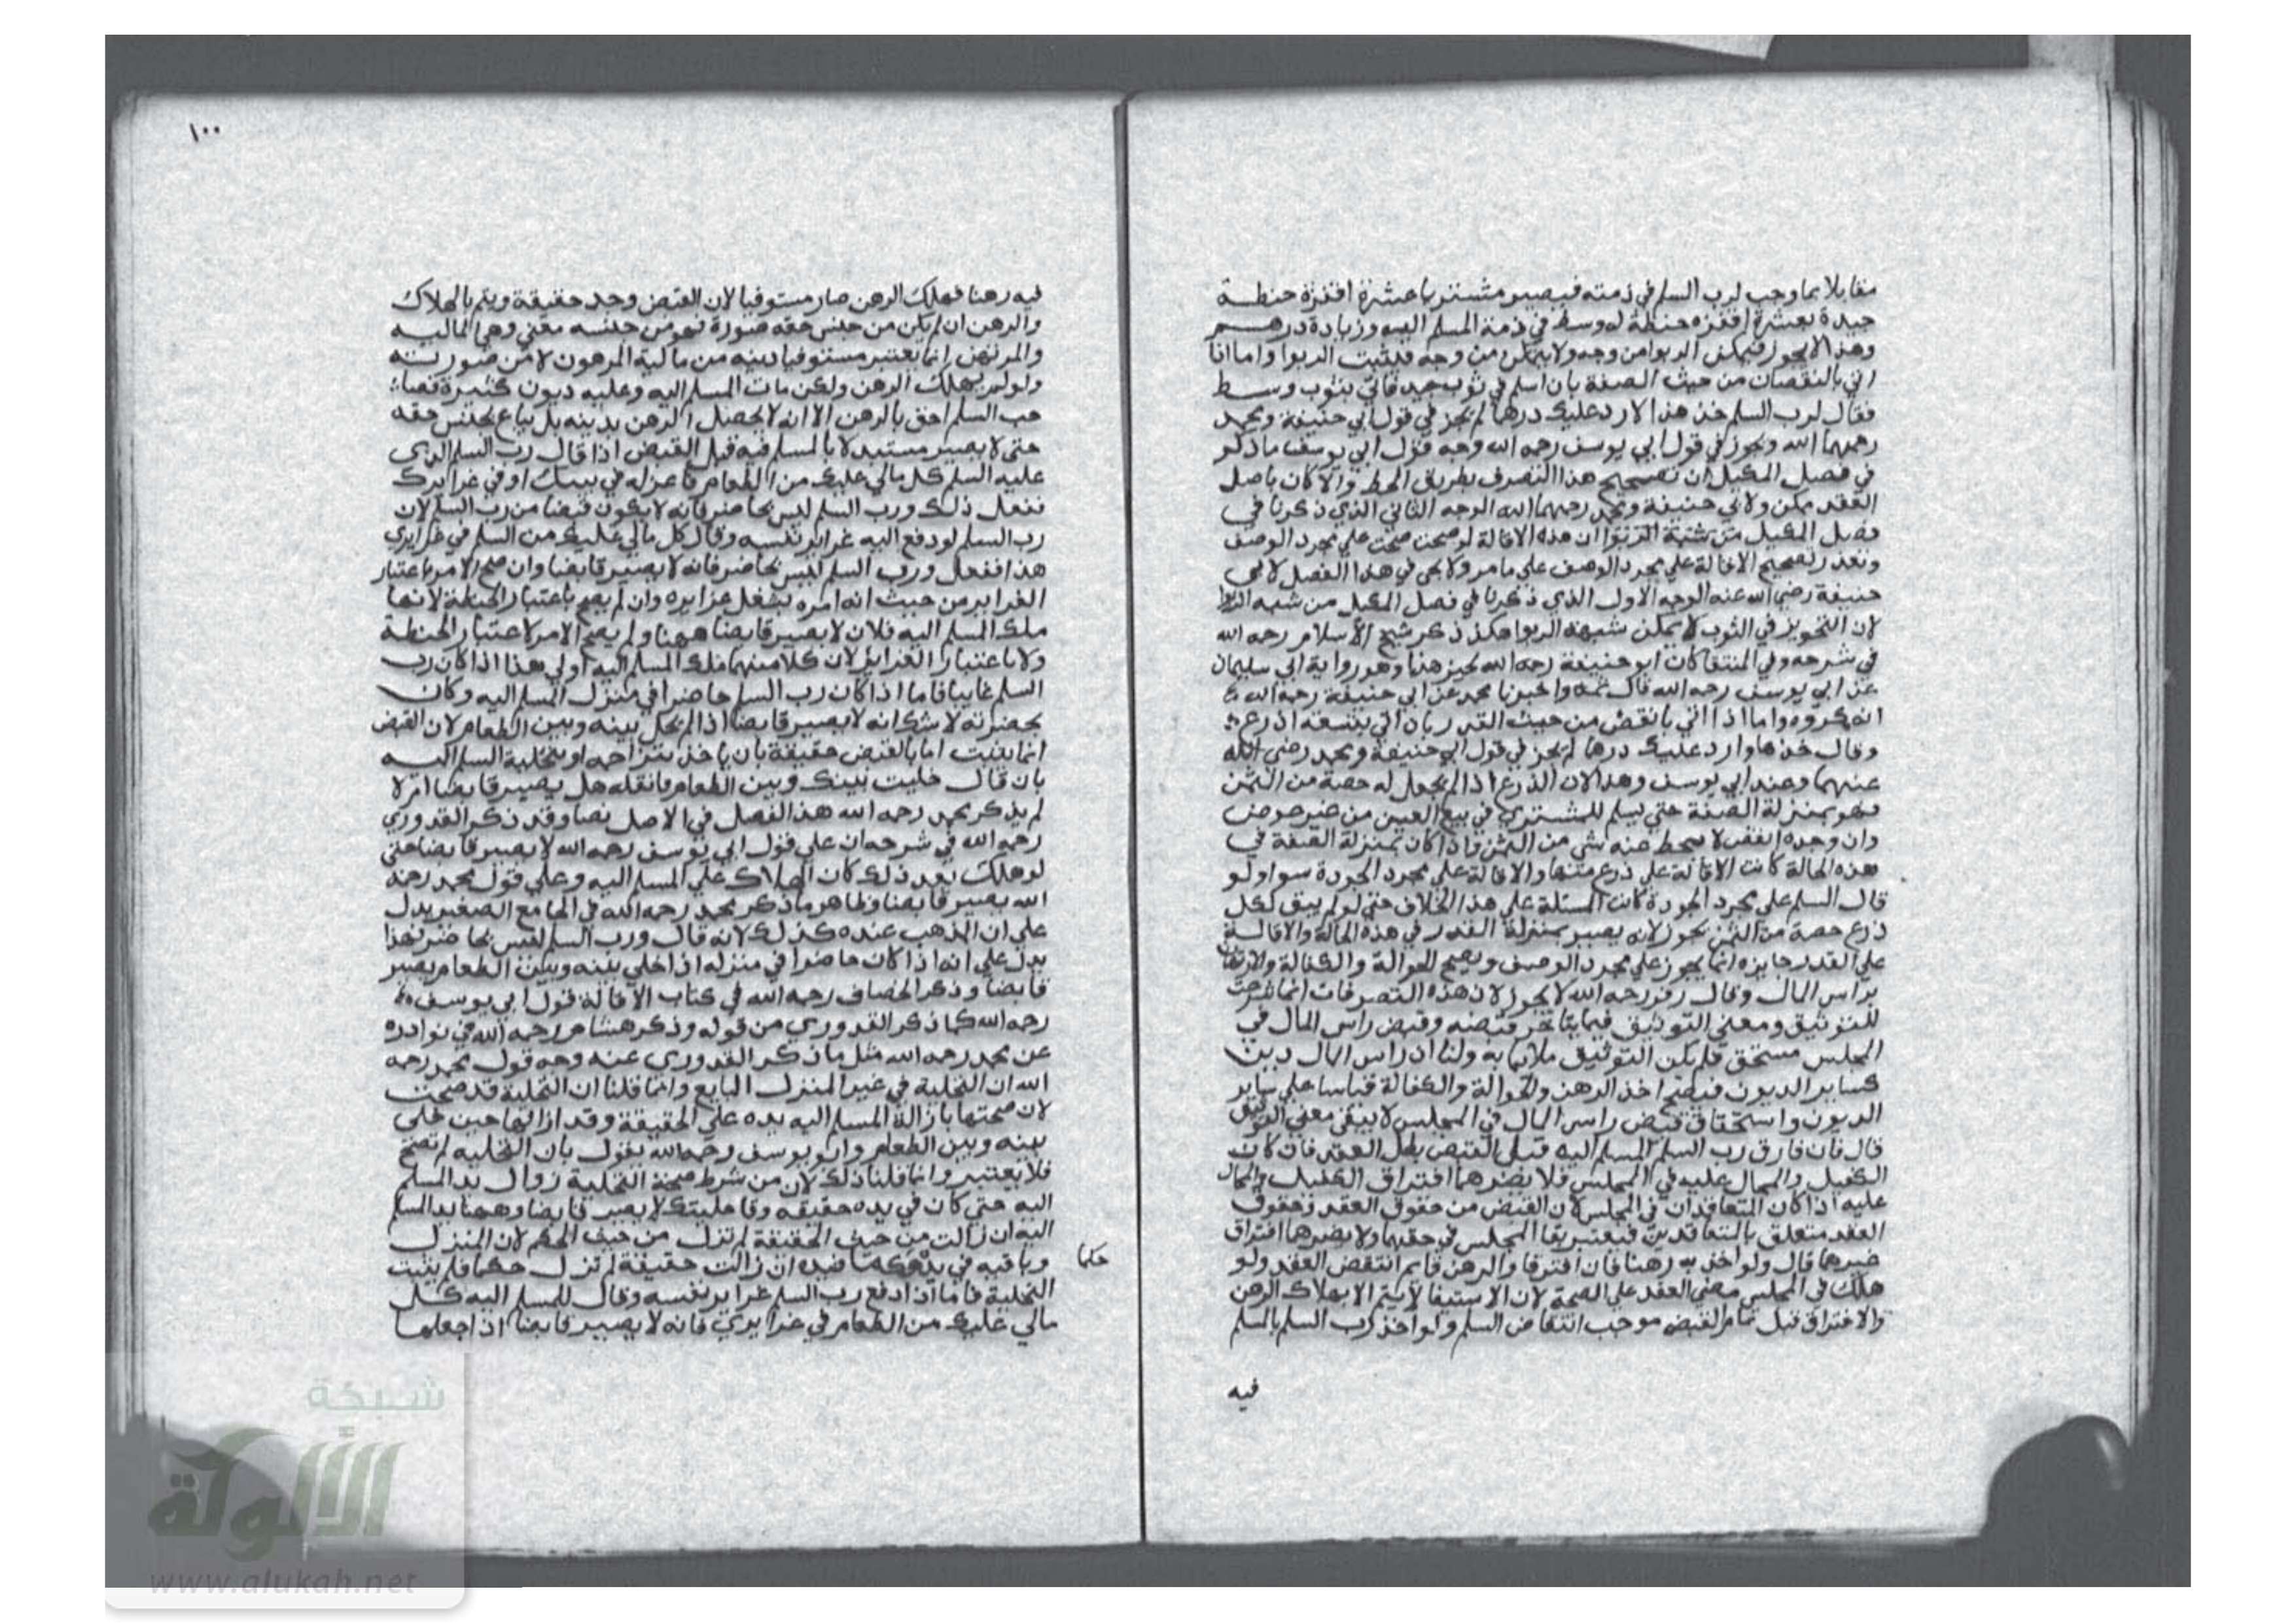 مقابلا بما وجب لرب السلم في ذمته فيصير مشتريا عشرة اقفزة حنطة
جيدة بعشرة اقفزه حنطة له وسط في ذمة المسلم اليه وزيادة درهم
وهذا لا يجوز فيمكن الربوا من وجه ولا يتمكن من وجه فلا يثبت الربوا واما اذا
اتي بالنقصان من حيث الصفة بان اسلم في ثوب جيد فاتي بثوب وسط
فقال لرب السلم خذ هذا لا رد عليك درهما لم يجز في قول ابي حنيفة ومحمد
رحمهما الله ويجوز في قول ابي يوسف رحمه الله وجه قول ابي يوسف ما ذكر
في فصل المكيل ان تصحيح هذا التصرف بطريق الحط والا كان باصل
العقد ممكن ولابي حنيفة ومحمد رحمهما الله الوجه الثاني الذي ذكرنا في
فصل المكيل من شبهة الربوا ان هذه الاقالة لو صحت صحت علي مجرد الوصف
وتعذر تصحيح الاقالة علي مجرد الوصف علي ما مر ولا يجي في هذا الفصل لابي
حنيفة رضي الله عنه الوجه الاول الذي ذكرنا في فصل المكيل من شبه الربوا
لان التجويز في الثوب لا يمكن شبهة الربوا هكذ ذكر شيخ الاسلام رحمه الله
في شرحه وفي المنتقا كان ابو حنيفة رحمه الله يجيز هذا وهو رواية ابي سليمان
عن ابي يوسف رحمه الله قال محمد واخبرنا محمد عن ابي حنيفة رحمه الله
انه كرهه واما اذا اتي بانقص من حيث القدر بان اتي بتسعة اذرع
وقال خذ هذا وارد عليك درهما لم يجز في قول ابي حنيفة ومحمد رضي الله
عنهما وعند ابي يوسف وهذا لان الذرع اذا لم يجعل له حصة من الثمن
فهو بمنزلة الصفة حتي يسلم للمشتري في بيع العين من غير عوض
وان وجده انقص لا يحط عنه شي من الثمن فاذا كان بمنزلة الصفة في
هذه الحالة كانت الاقالة علي ذرع منها والاقالة علي مجرد الجودة سوا ولو
قال السلم علي مجرد الجودة كانت المسئلة علي هذا الخلاف حتي لو لم يبق لكل
ذرع حصة من الثمن يجوز لانه يصير بمنزلة القدر في هذه الحالة والاقالة
علي القدر جايزه انما يجوز علي مجرد الوصف ويصح الحوالة والكفالة والارتهان
براس المال وقال زفر رحمه الله لا يجوز لان هذه التصرفات انما شرعت
للتوثيق ومعني التوثيق فيما يتاخر قبضه وقبض راس المال في
المجلس مستحق فلم يكن التوثيق ملايما به ولنا ان راس المال دين
كساير الديون فيصح اخذ الرهن والحوالة والكفالة قياسا علي ساير
الديون واستحقاق قبض راس المال في المجلس لا يبقي معني التوثيق
قال فان فارق رب السلم المسلم اليه قبل القبض بطل العقد فان كان
الكفيل والمحال عليه في المجلس فلا يضرهما افتراق الكفيل والمحال
عليه اذا كان المتعاقدان في المجلس لان القبض من حقوق العقد وحقوق
العقد متعلق بالمتعاقدين فيعتبر بقا المجلس في حقهما ولا يضرهما افتراق
غيرهما قال ولو اخذ به رهنا فان افترقا والرهن قايم انتقض العقد ولو
هلك في المجلس مضي العقد علي الصحة لان الاستيفا لا يتم الا بهلاك الرهن
والافتراق قبل تمام القبض موجب انتقاض السلم ولو اخذ رب السلم بالسلم
فيه
١٠٠
فيه رهنا فهلك الرهن صار مستوفيا لان القبض وجد حقيقة ويتم بالهلاك
والرهن ان لم يكن من جنس حقه صورة فهو من جنسه معني وهي المالية
والمرتهن انما يعتبر مستوفيا دينه من مالية المرهون لا من صورته
ولو لم يهلك الرهن ولكن مات المسلم اليه وعليه ديون كثيرة فصا
حب السلم احق بالرهن الا انه لا يحصل الرهن بدينه بل يباع بجنس حقه
حتي لا يصير مستبدلا بالمسلم فيه قبل القبض اذا قال رب السلم الذي
عليه السلم كل مالي عليك من الطعام فاعزله في بيتك او في غرايرك
ففعل ذلك ورب السلم ليس بحاضر فانه لا يكون قبضا من رب السلم لان
رب السلم لو دفع اليه غراير نفسه وقال كل مالي عليك من السلم في غرايري
هذا ففعل ورب السلم ليس بحاضر فانه لا يصير قابضا وان صح الامر باعتبار
الغراير من حيث انه امره بشغل غرايره وان لم يصح باعتبار الحنطة لانها
ملك المسلم اليه فلان لا يصير قابضا ههنا ولم يصح الامر لا عتبار الحنطة
ولا باعتبار الغراير لان كلا منهما ملك المسلم اليه اولي هذا اذا كان رب
السلم غايبا فاما اذا كان رب السلم حاضرا في منزل المسلم اليه وكان
بحضرته لا شك انه لا يصير قابضا اذا لم يخل بينه وبين الطعام لان القبض
انما يثبت اما بالقبض حقيقة بان ياخذ بتراجمه او بتخلية السلم اليه
بان قال خليت بينك وبين الطعام فانقله هل يصير قابضا ام لا
لم يذكر محمد رحمه الله هذا الفصل في الاصل نصا وقد ذكر القدوري
رحمه الله في شرحه ان علي قول ابي يوسف رحمه الله لا يصير قابضا حتي
لو هلك بعد ذلك كان الهلاك علي المسلم اليه وعلي قول محمد رحمه
الله يصير قابضا وظاهر ما ذكر محمد رحمه الله في الجامع الصغير يدل
علي ان المذهب عنده كذلك لانه قال ورب السلم ليس بحاضر فهذا
يدل علي انه اذا كان حاضرا في منزله اذا خلي بينه وبين الطعام يصير
قابضا وذكر الخصاف رحمه الله في كتاب الاقالة قول ابي يوسف
رحمه الله كما ذكر القدوري من قوله وذكر هشام رحمه الله في نوادره
عن محمد رحمه الله مثل ما ذكر القدوري عنه وجه قول محمد رحمه
الله ان التخلية في غير المنزل البايع وانما قلنا ان التخلية قد صحت
لان صحتها بازالة المسلم اليه يده علي الحقيقة وقد ازالها حين خلي
بينه وبين الطعام وابو يوسف رحمه الله يقول بان التخليه لم تصح
فلا يعتبر وانما قلنا ذلك لان من شرط صحة التخلية زوال يد المسلم
اليه حتي كان في يده حقيقه وقا خليتك لا يصير قابضا وههنا يد المسلم
اليه ان زالت من حيث الحقيقة لم تزل من حيث الحكم لان المنزل
وما فيه في يده حكما فيده ان زالت حقيقة لم تزل حكما فلم يثبت
حكما
التخلية فاما اذا دفع رب السلم غراير نفسه وقال للمسلم اليه كل
مالي عليك من الطعام في غرايري فانه لا يصير قابضا اذا جعلها
شبكة
الألوكة
www.alukah.net